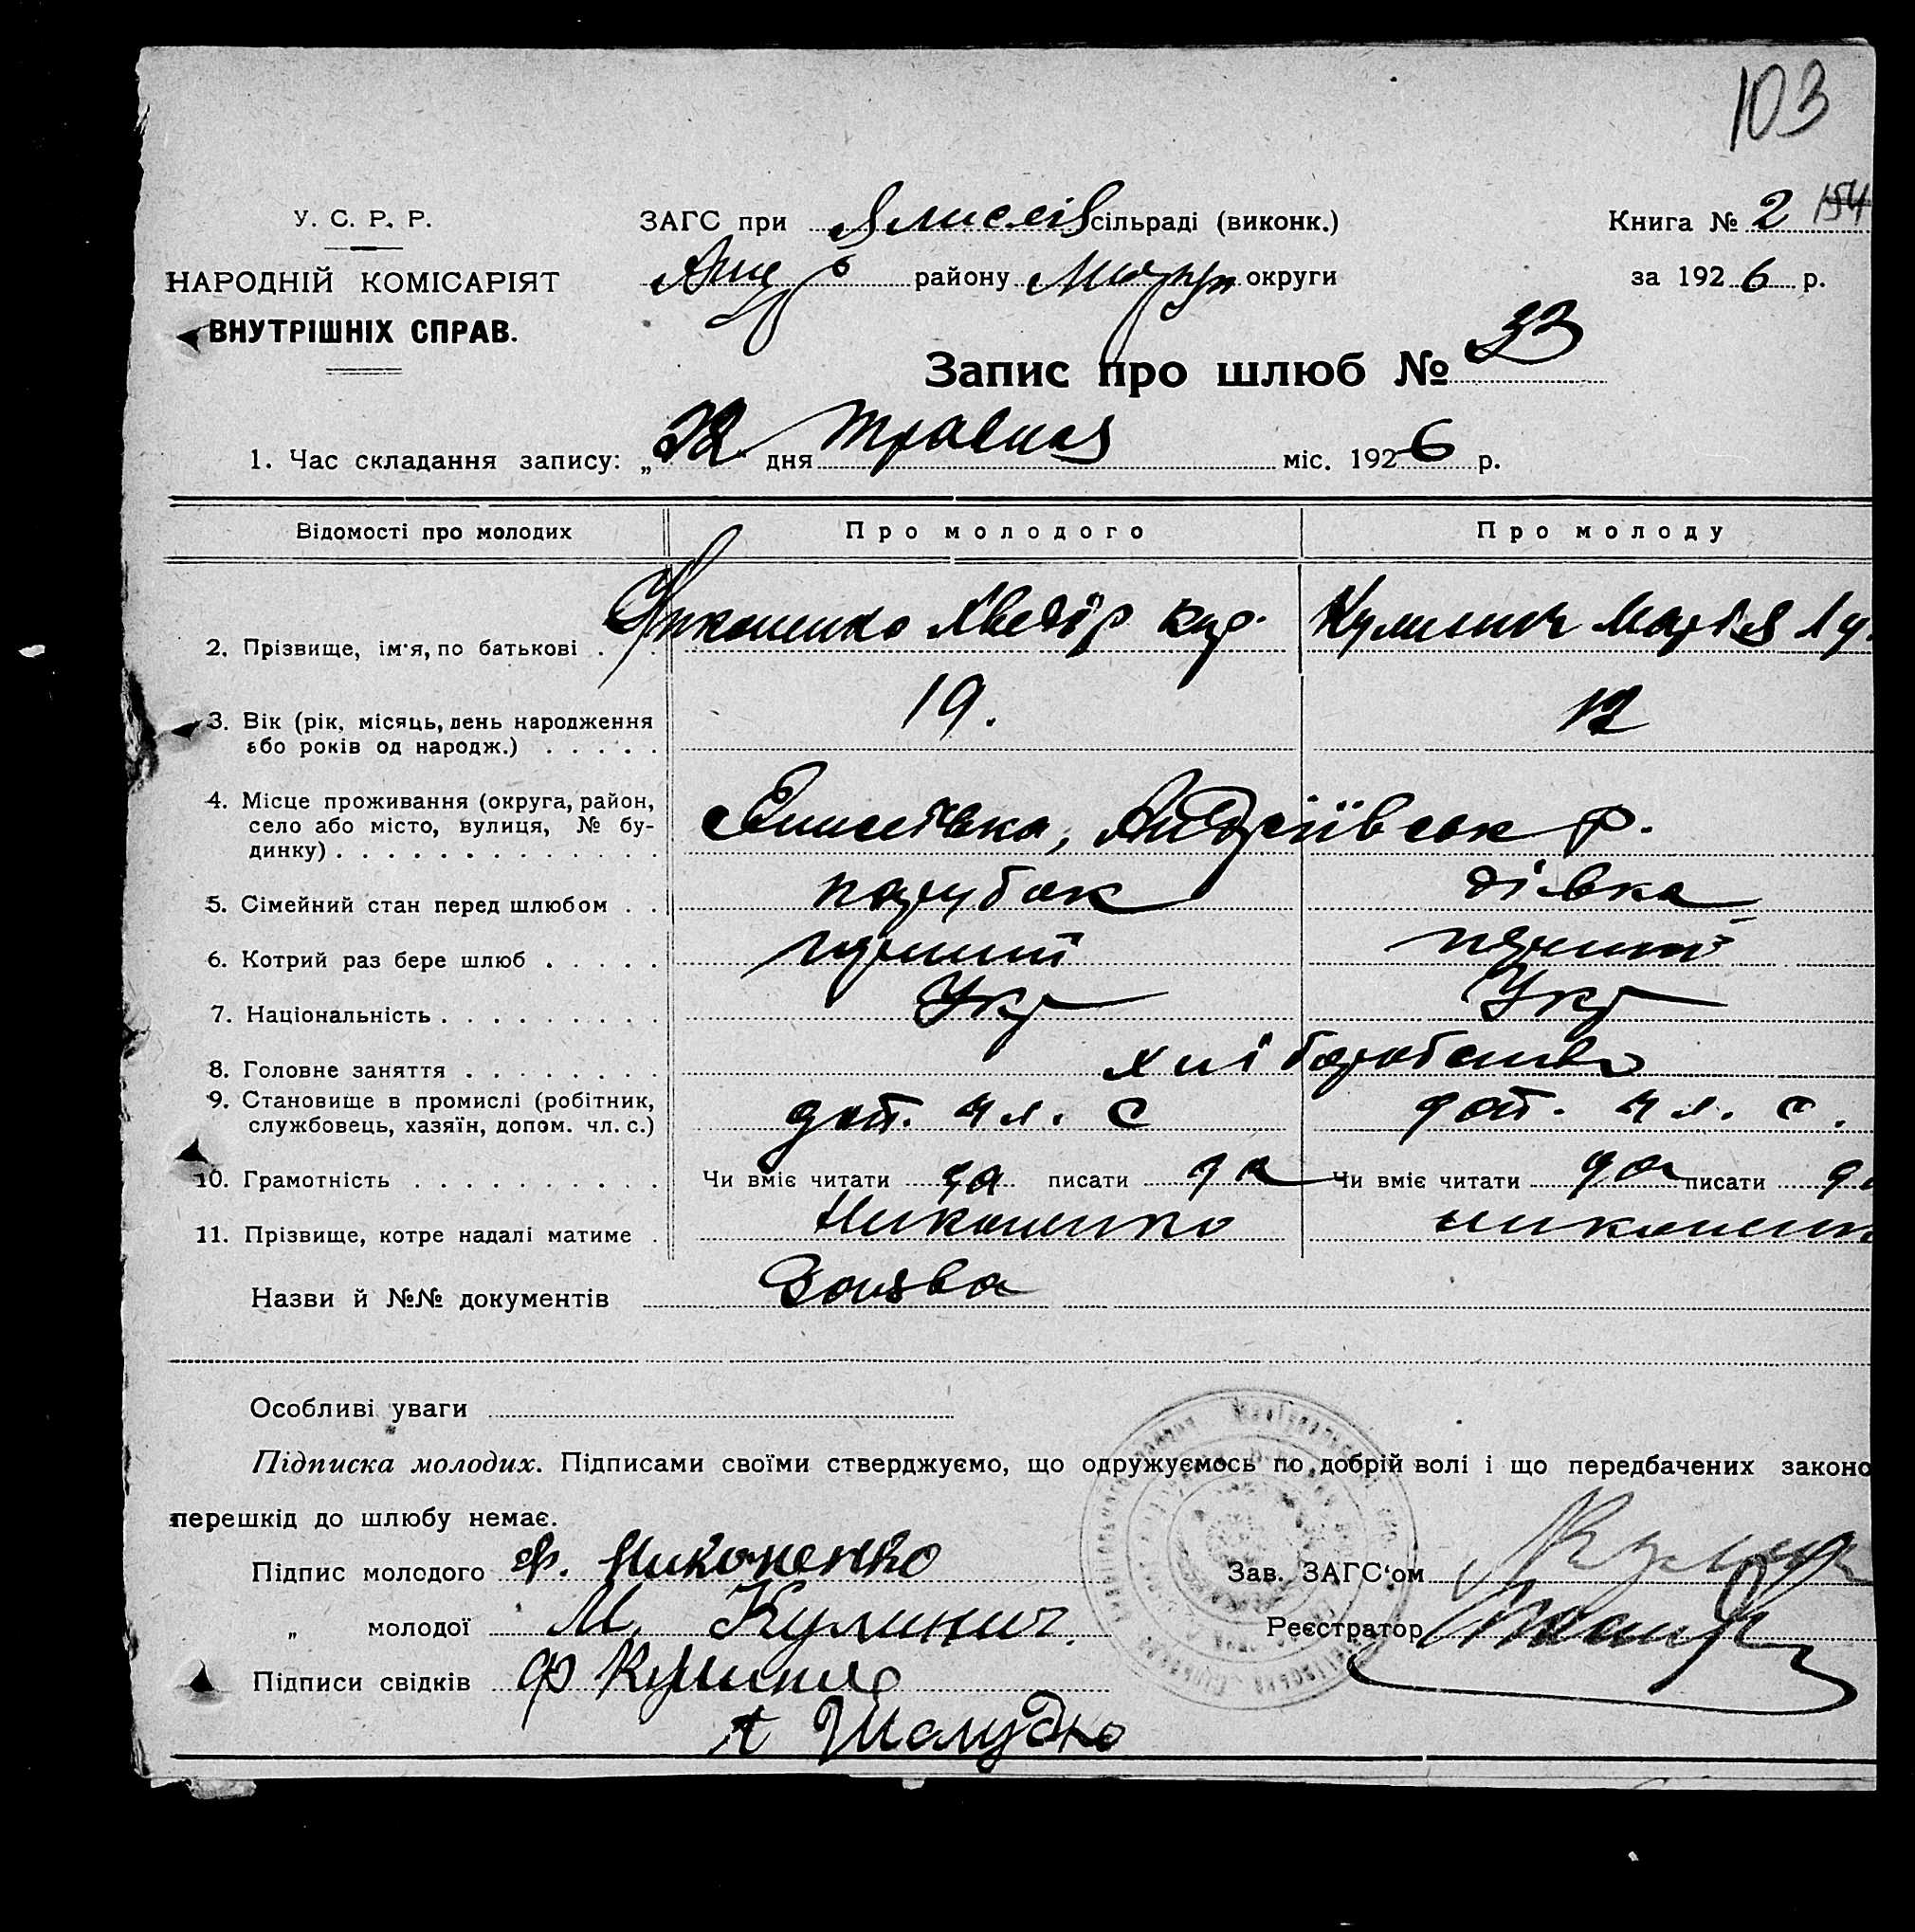 103
У. С. Р. Р.
ЗАГС при Єлисеїв сільраді (виконк.)
Книга № 2 154
НАРОДНІЙ КОМІСАРІЯТ
району Маріуп округи
за 1926 р.
ВНУТРІШНІХ СПРАВ.
Запис про шлюб № 33
1. Час складання запису: „ " дня травня міс. 1926 р.
Відомості про молодих
Про молодого
Про молоду
2. Прізвище, ім'я, по батькові . .
Никоненко Хведір
Кулинич Марія Лу
3. Вік (рік, місяць, день народження
або років од народж.) . . . . .
19.
4. Місце проживання (округа, район,
село або місто, вулиця, № бу-
динку) . . . . . . . . . . . . . .
Єлисеївка, Андріївськ р.
5. Сімейний стан перед шлюбом . .
парубок
дівка
6. Котрий раз бере шлюб . . . . .
перший
перший
7. Національність . . . . . . . . . .
Укр
Укр
8. Головне заняття . . . . . . . .
хліборобство
9. Становище в промислі (робітник,
службовець, хазяїн, допом. чл. с.)
доп. чл. с
доп. чл. с.
10. Грамотність . . . . . . . . . .
Чи вміє читати да писати да
Чи вміє читати да писати да
11. Прізвище, котре надалі матиме .
Никоненко
Никоненк
Назви й №№ документів Заява
Особливі уваги
Підписка молодих. Підписами своїми стверджуємо, що одружуємось по добрій волі і що передбачених законо
перешкід до шлюбу немає.
Підпис молодого Ф. Никоненко
Зав. ЗАГС'ом
„ молодої М. Кулинич.
Реєстратор
Підписи свідків Ф Кулинич
А Шелудко